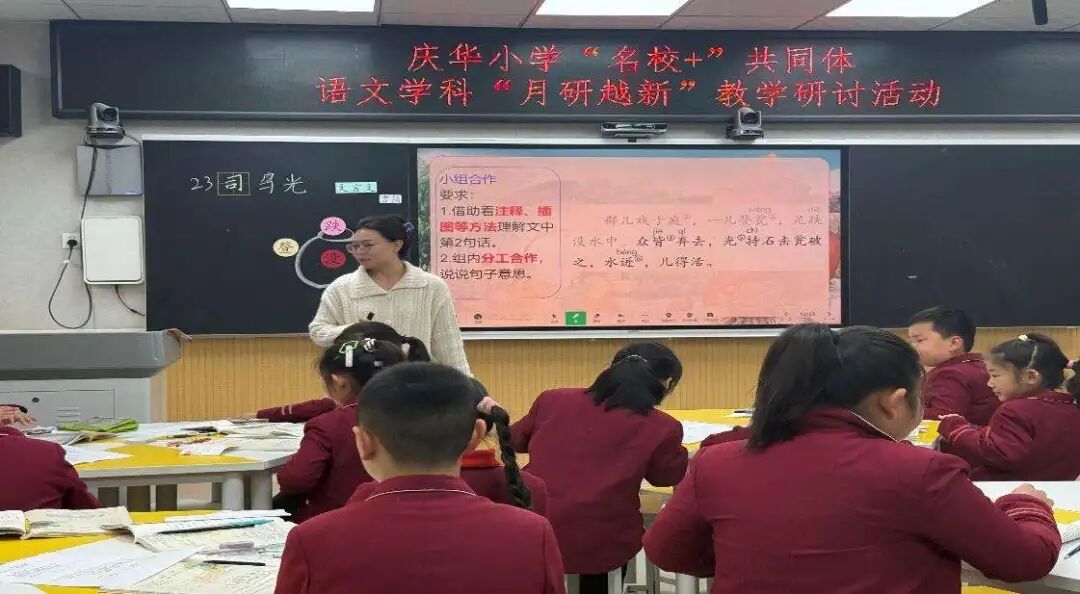 庆华小学“名校+”共同体
语文学科“月研越新”教学研讨活动
23 司马光
文言文
跌
登
没
小组合作
要求：
1.借助看注释、插
图等方法理解文中
第2句话。
2.组内分工合作，
说说句子意思。
wèng
群儿戏于庭，一儿登瓮，足跌
jiē qì
没水中。众皆弃去，光持石击瓮破
bèng
之，水迸，儿得活。